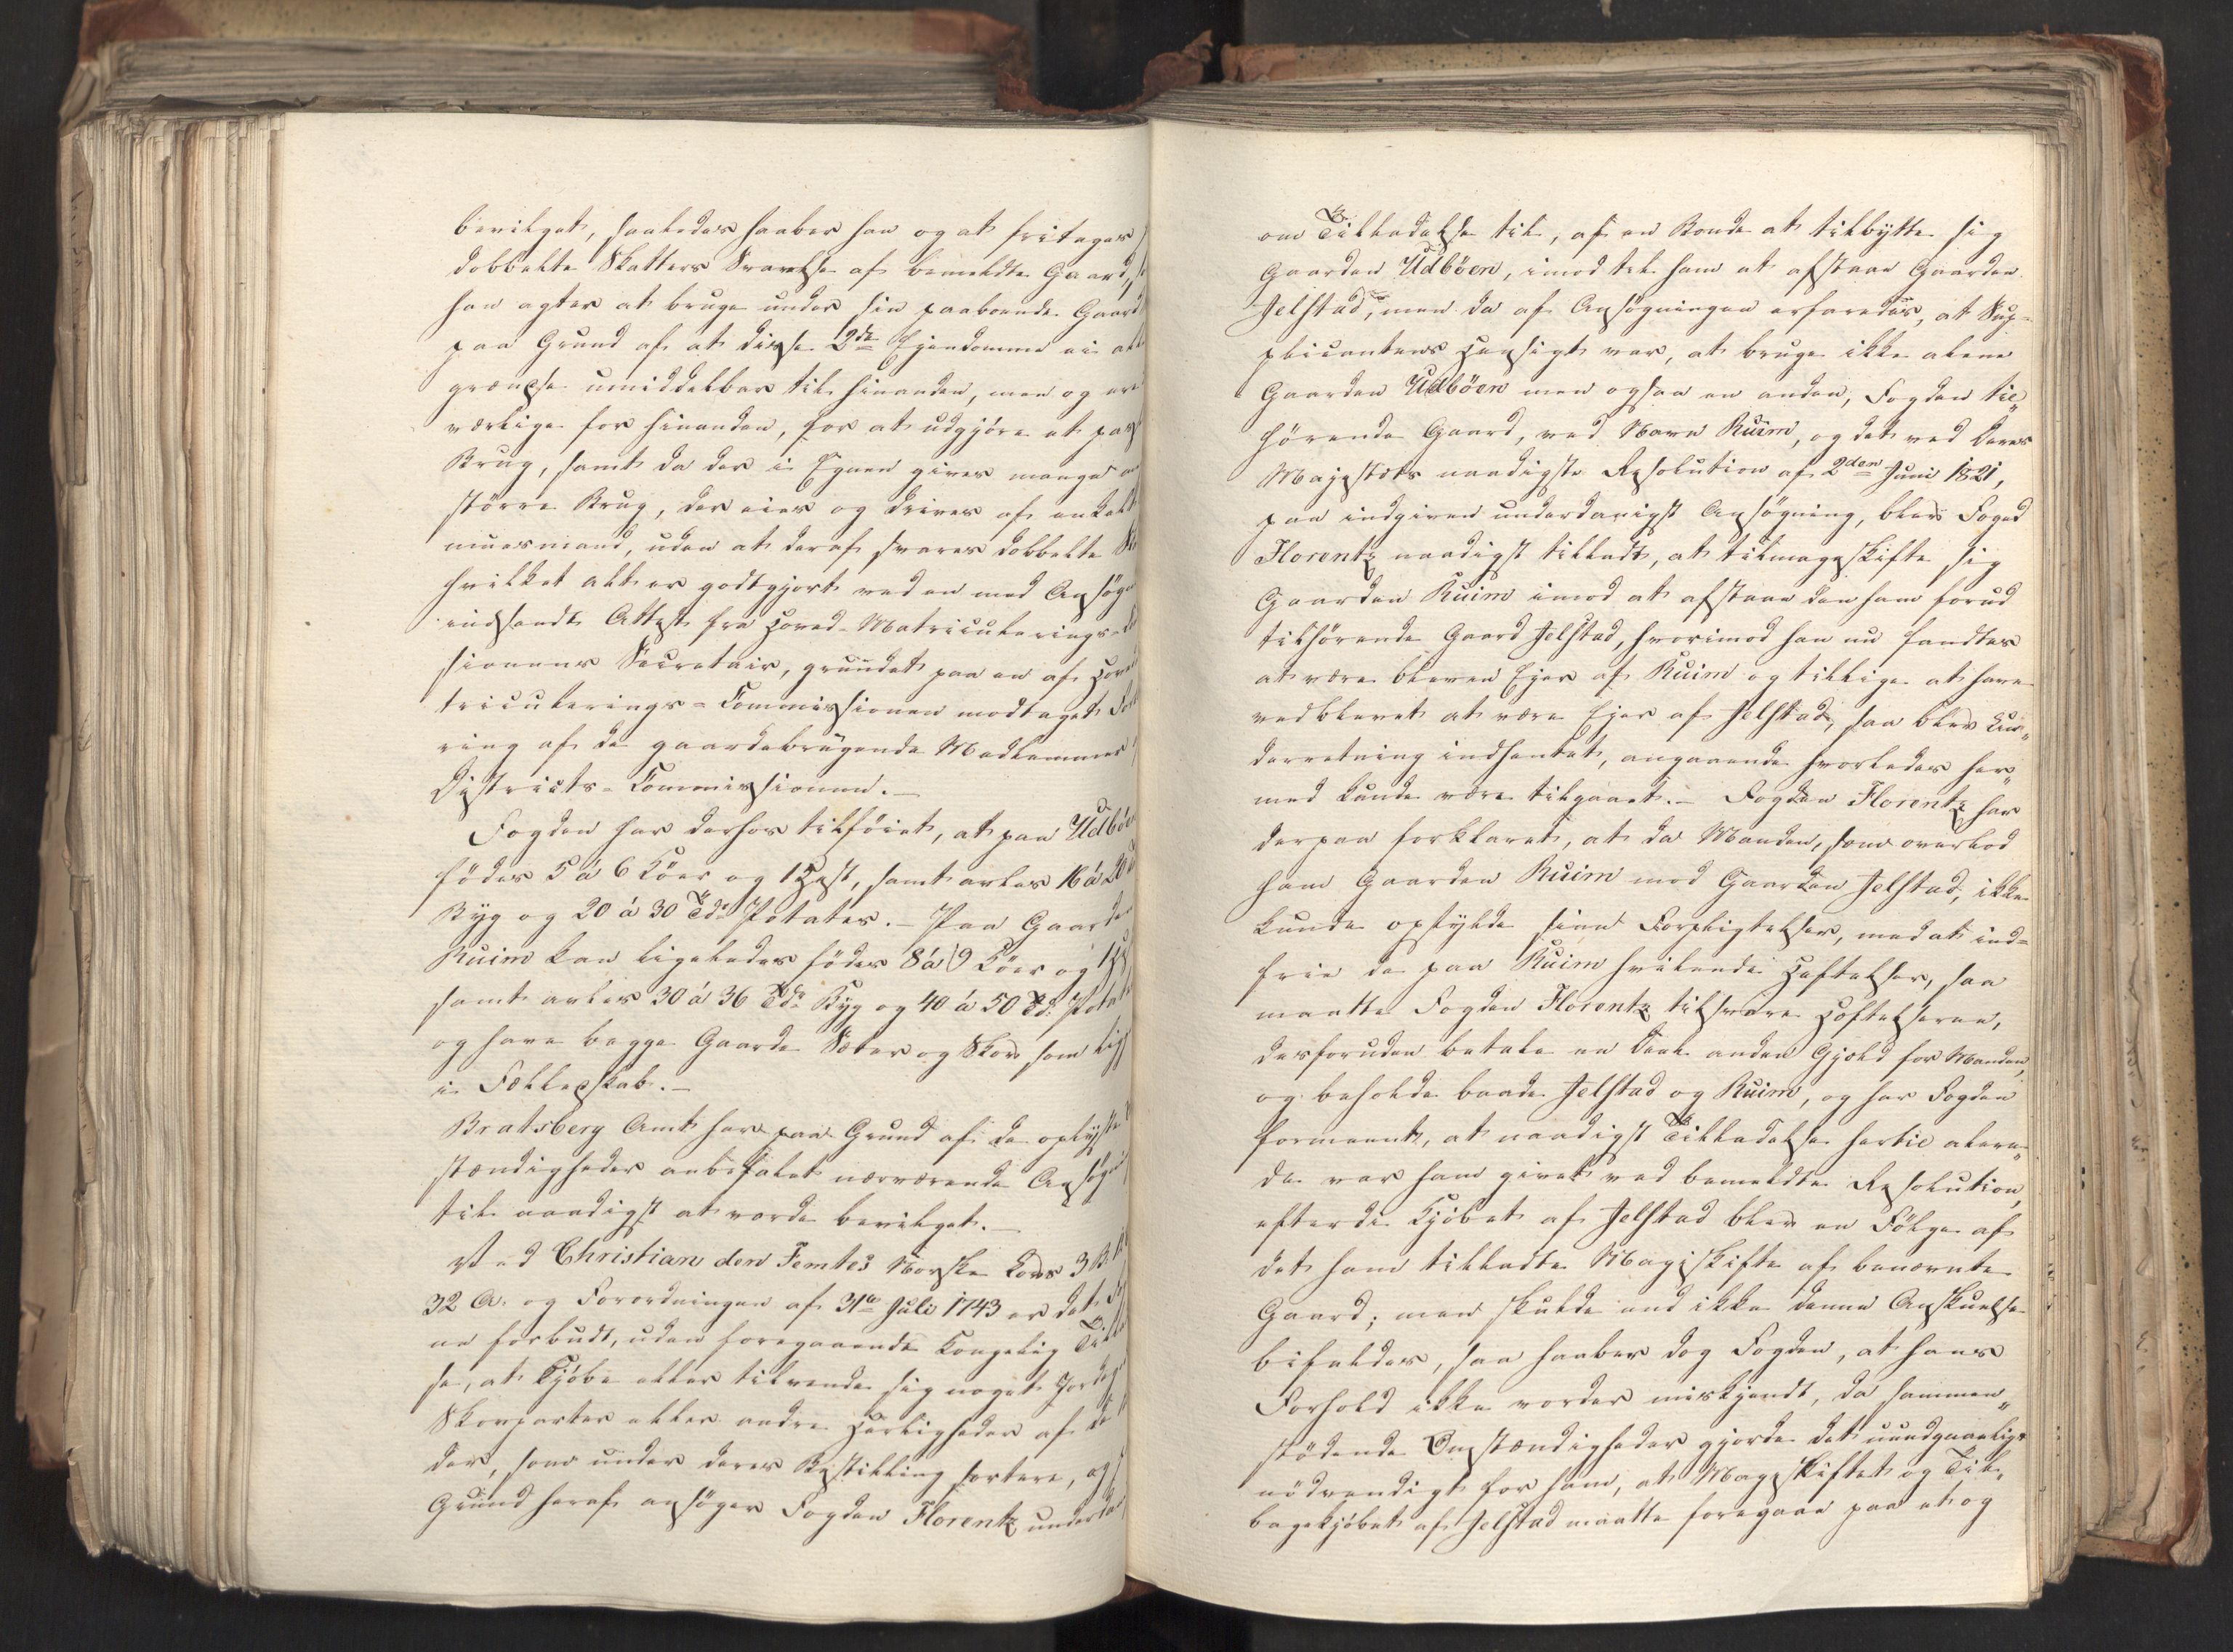 bevilget, saaledes haaber han og at fritages
dobbelte Skatters Svarelse af bemeldte Gaard,
han agter at bruge under sin paaboende Gaard
paa Grund af at disse 2de Ejendomme ei all
grændse umiddelbar til hinanden, men og ere
værlige for hinanden, for at udgjøre et pas
Brug, samt da der i Egnen gives mange
større Brug, der eies og drives af enkelt
muesmænd, uden at deraf svares dobbelte
hvilket alt er godtgjort ved en med Ansøgn
indsendt Attest fra Hoved-Matriculerings-
sionens Secretair, grundet paa en af Hoved
triculerings-Commissionen modtaget
ring af de gaardebrugende Medlemmer
Districts-Commissionen.-
Fogden har derhos tilføiet, at paa Udbøe
fødes 5 á 6 Køer og 1 Hest, samt avles 16 á 20
Byg og 20 á 30 Tdr Potates.- Paa Gaarde
Ruim kan ligeledes fødes 8 á 9 Køer og 1
samt avles 30 á 36 Tdr Byg og 40 á 50 Td: Potate
og have begge Gaarde Sæter og Skov som lig
i Fællesskab.-
Bratsberg Amt har paa Grund af de oplyste
stændigheder anbefalet nærværende Ansøgn
til naadigst at vorde bevilget.-
Ved Christian den Femtes Norske Lovs 3 B.
32 A. og Forordningen af 31te Juli 1743 er det
ne forbudt, uden foregaaende Kongelig
se, at kjøbe eller tilvende sig noget Jordeg
Skovparter eller andre Herligheder af
der, som under deres Bestilling sortere, og
Grund heraf ansøger Fogden Florentz underda
om Tilladelse til, af en Bonde at tilbytte sig
Gaarden Udbøen, imod til ham at afstaae Gaarden
Jelstad, men da af Ansøgningen erfaredes, at Sup-
plicantens Hensigt var, at bruge ikke alene
Gaarden Udbøen men ogsaa en anden, Fogden til-
hørende Gaard, ved Navn Ruim, og det ved Deres
Majestæts naadigste Resolution af 2den Juni 1821,
paa indgiven underdanigst Ansøgning, blev Foged
Florentz naadigst tilladt, at tilmageskifte sig
Gaarden Ruim imod at afstaae den ham forud
tilhørende Gaard Jelstad, hvorimod han nu fandtes
at være bleven Ejer af Ruim og tillige at have
vedblevet at være Ejer af Jelstad, saa blev Un-
derretning indhentet, angaaende hvorledes her-
med kunde være tilgaaet.- Fogden Florentz har
derpaa forklaret, at da Manden, som overlod
ham Gaarden Ruim mod Gaarden Jelstad, ikke
kunde opfylde sine Forpligtelser, med at ind-
frie de paa Ruim hvilende Heftelser, saa
maatte Fogden Florentz tilsvare Heftelserne,
desforuden betale en Deel anden Gjæld for Manden,
og beholde baade Jelstad og Ruim, og har Fogden
formeent, at naadigst Tilladelse hertil allere-
de var ham givet ved bemeldte Resolution,
efterdi Kjøbet af Jelstad blev en Følge af
det ham tilladte Mageskifte af benævnte
Gaard; men skulde end ikke denne Anskuelse
bifaldes, saa haaber dog Fogden, at hans
Forhold ikke vorder miskjendt, da sammen-
stødende Omstændigheder gjorde det uundgaaelige
nødvendigt for ham, at Mageskiftet og Til-
bagekjøbet af Jelstad maatte foregaae paa et og